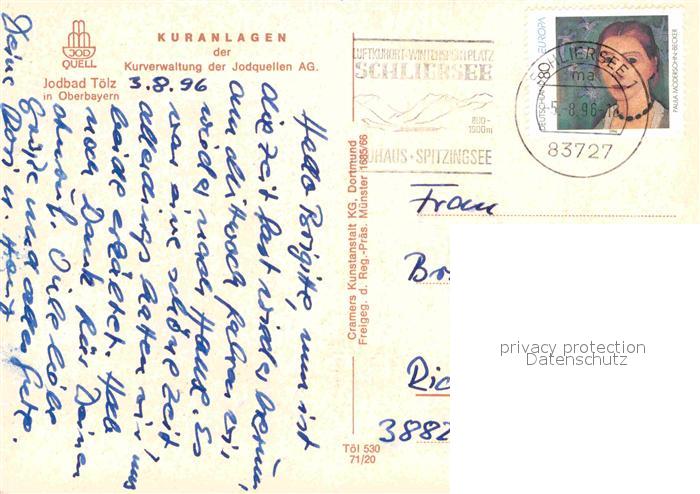 JOD
QUELL
Jodbad Tölz
in Oberbayern
KURANLAGEN
der
Kurverwaltung der Jodquellen AG.
3.8.96
Hallo Brigitte, nun ist
die Zeit fast wieder herum,
am Mittwoch fahren wir
wieder nach Hause. Es
war eine schöne Zeit,
allerdings hatten wir uns
beide erkältet. Hab
noch Dank für Deinen
Anruf. Viele liebe
Grüße und alles Gute.
Deine
Cramers Kunstanstalt KG, Dortmund
Freigeg. d. Reg.-Präs. Münster 1685/66
Töl 530
71/20
LUFTKURORT-WINTERSPORTPLATZ
SCHLIERSEE
800-
1500m
UHAUS·SPITZINGSEE
SCHLIERSEE
ma
-5.-8.96-
83727
EUROPA
DEUTSCHLAND
80
PAULA MODERSOHN-BECKER
Frau
Br
Ric
3882
privacy protection
Datenschutz